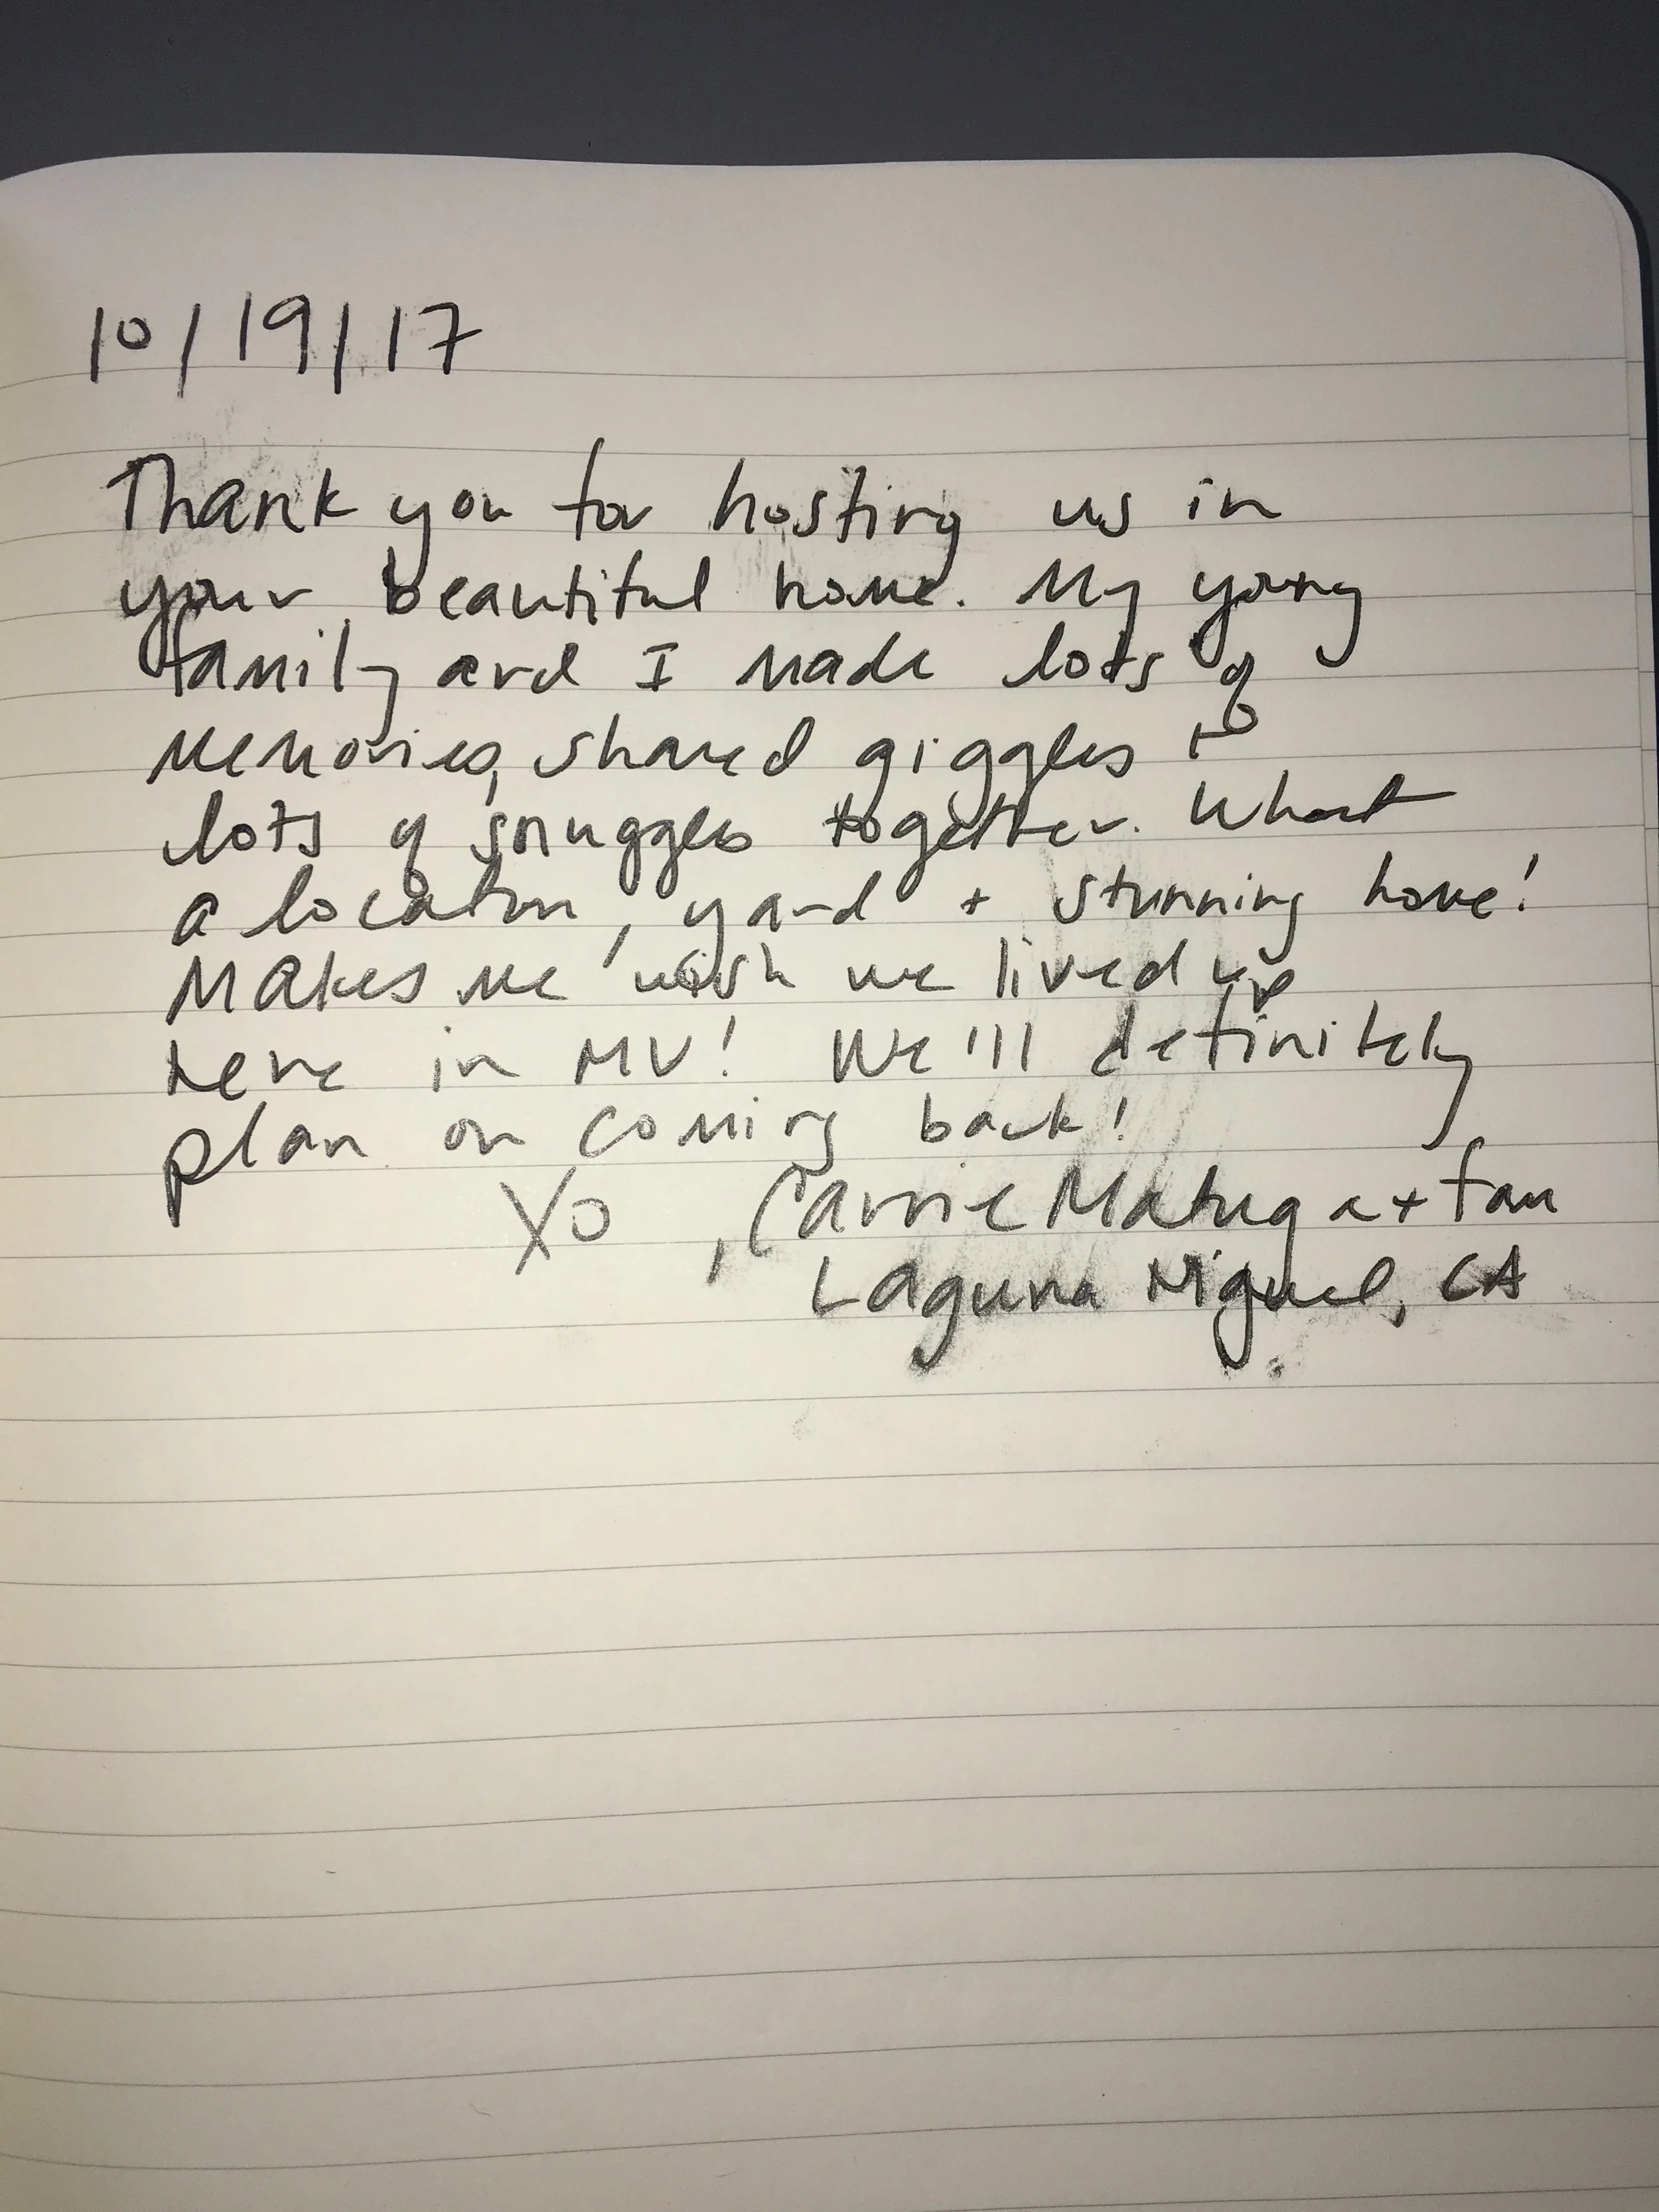 10/19/17
Thank you for hosting us in
your beautiful home. My young
family and I made lots of
memories, shared giggles +
lots of snuggles together. What
a location, yard + stunning home!
Makes me wish we lived up
here in MV! We'll definitely
plan on coming back!
XO, Carrie Matuga + fam
Laguna Niguel, CA